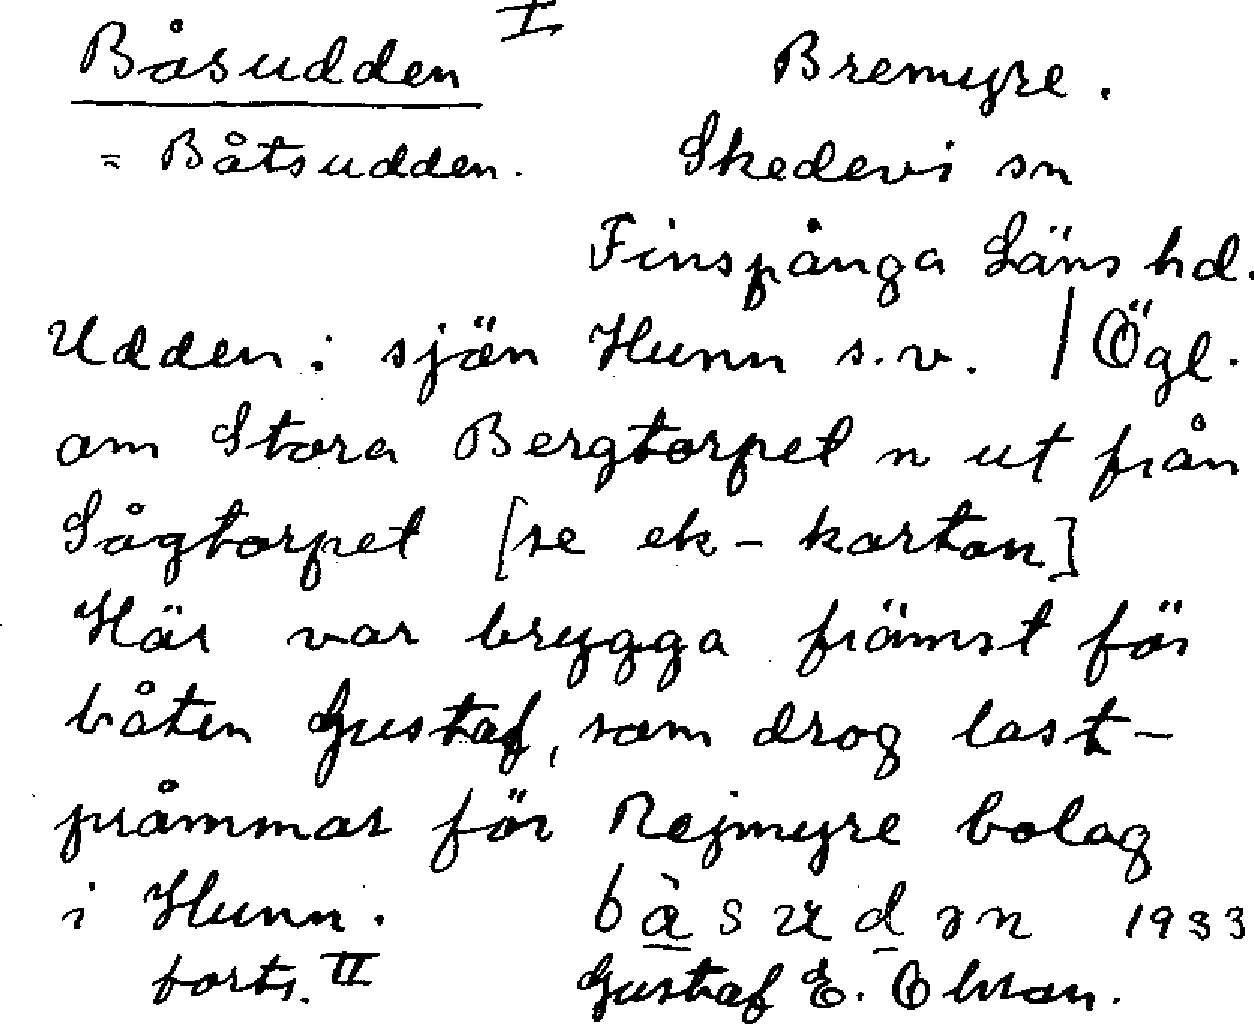 I
Båsudden Bremyre.
= Båtsudden. Skedevi sn
Finspånga Läns hd.
Udden i sjön Hunn s.v. / Ögl.
om Stora Bergtorpet n ut från
Sågtorpet [se ek-kartan]
Här var brygga främst för
båten Gustaf, som drog last-
pråmmar för Rejmyre bolag
i Hunn. 1933
forts. II Gustaf E. Olsson.